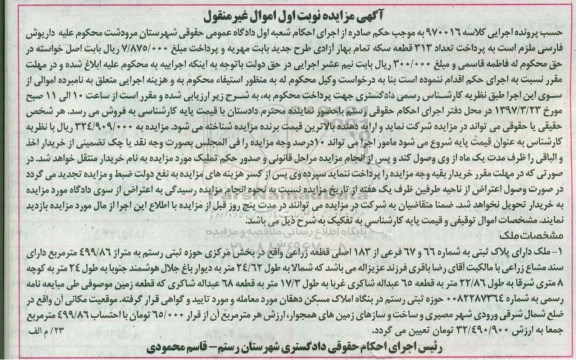 آگهی مزایده نوبت اول اموال غیرمنقول
حسب پرونده اجرایی کلاسه ۹۷۰۰۱۶ به موجب حکم صادره از اجرای احکام شعبه اول دادگاه عمومی حقوقی شهرستان مرودشت محکوم علیه داریوش
فارسی ملزم است به پرداخت تعداد ۳۱۳ قطعه سکه تمام بهار آزادی طرح جدید بابت مهریه و پرداخت مبلغ ۷/۸۷۵/۰۰۰ ریال بابت اصل خواسته در
حق محکوم له فاطمه قاسمی و مبلغ ۳۰۰/۰۰۰ ریال بابت نیم عشر اجرایی در حق دولت باتوجه به اینکه اجراییه به محکوم علیه ابلاغ شده و در مهلت
مقرر نسبت به اجرای حکم اقدام ننموده است بنا به درخواست وکیل محکوم له به منظور استیفاء محکوم به و هزینه اجرایی متعلق به نامبرده اموالی از
سوی این اجرا طبق نظریه کارشناس رسمی دادگستری جهت پرداخت محکوم به، به شرح زیر ارزیابی شده و مقرر است از ساعت ۱۰ الی ۱۱ صبح
مورخ ۱۳۹۷/۳/۲۳ در محل دفتر اجرای احکام حقوقی رستم باحضور نماینده محترم دادستان با قیمت پایه کارشناسی به فروش می رسد. هر شخص
حقیقی یا حقوقی می تواند در مزایده شرکت نماید و ارایه دهنده بالاترین قیمت برنده مزایده شناخته می شود. مزایده به ۳۲۴/۹۰۹/۰۰۰ ریال با نظریه
کارشناس به عنوان قیمت پایه شروع می شود مامور اجرا می تواند ۱۰درصد وجه مزایده را فی المجلس بصورت وجه نقد یا چک تضمینی از خریدار اخذ
و الباقی را ظرف مدت یک ماه از وی وصول کند و پس از انجام مزایده مراحل قانونی و صدور حکم تملیک مورد مزایده به نام خریدار منتقل خواهد شد. در
صورتی که در مهلت مقرر خریدار بقیه وجه مزایده را پرداخت ننماید سپرده وی پس از کسر هزینه های مزایده به نفع دولت ضبط و مزایده تجدید می گردد
در صورت وصول اعتراض از ناحیه طرفین ظرف یک هفته از تاریخ مزایده نسبت به نحوه انجام مزایده رسیدگی به اعتراض از سوی دادگاه مورد مزایده
به خریدار تحویل نخواهد شد. ضمنا متقاضیان به شرکت در مزایده می توانند در مدت پنج روز قبل از مزایده با اطلاع این اجرا از مال مورد مزایده بازدید
نمایند. مشخصات اموال توقیفی و قیمت پایه کارشناسی به تفکیک به شرح ذیل می باشد.
مشخصات ملک
۱- ملک دارای پلاک ثبتی به شماره ۶۶ و ۶۷ فرعی از ۱۸۳ اصلی قطعه زراعی واقع در بخش مرکزی حوزه ثبتی رستم به متراژ ۴۹۹/۸۶ مترمربع دارای
سند مشاع زراعی با مالکیت آقای رضا باقری فرزند عزیزاله می باشد که شمالا به طول ۲۴/۶۲ متر به دیوار باغ جلال هوشمند جنوبا به طول ۲۴ متر به کوچه
۸ متری شرقا به طول ۲۲/۸ متر به قطعه ۶۵ عبداله شاکری غربا به طول ۱۷/۳ متر به قطعه ۶۸ عبداله شاکری که قطعه زمین موصوفی طی مبایعه نامه
رسمی به شماره ۰۰۸۲۲۸۷۳۶۴ حوزه ثبتی رستم در بنگاه املاک مسکن دهقان مورد معامله و مورد تایید و گواهی قرار گرفته. موقعیت مکانی آن واقع در
ضلع شمال شرقی ورودی شهر مصیری و ساخت و سازهای زمین های همجوار، ارزش هر مترمربع آن از قرار ۶۵/۰۰۰ تومان با احتساب ۴۹۹/۸۶ مترمربع
جمعا به ارزش ۳۲/۴۹۰/۹۰۰ تومان تعیین می گردد.
۲۳/ م الف
رئیس اجرای احکام حقوقی دادگستری شهرستان رستم- قاسم محمودی